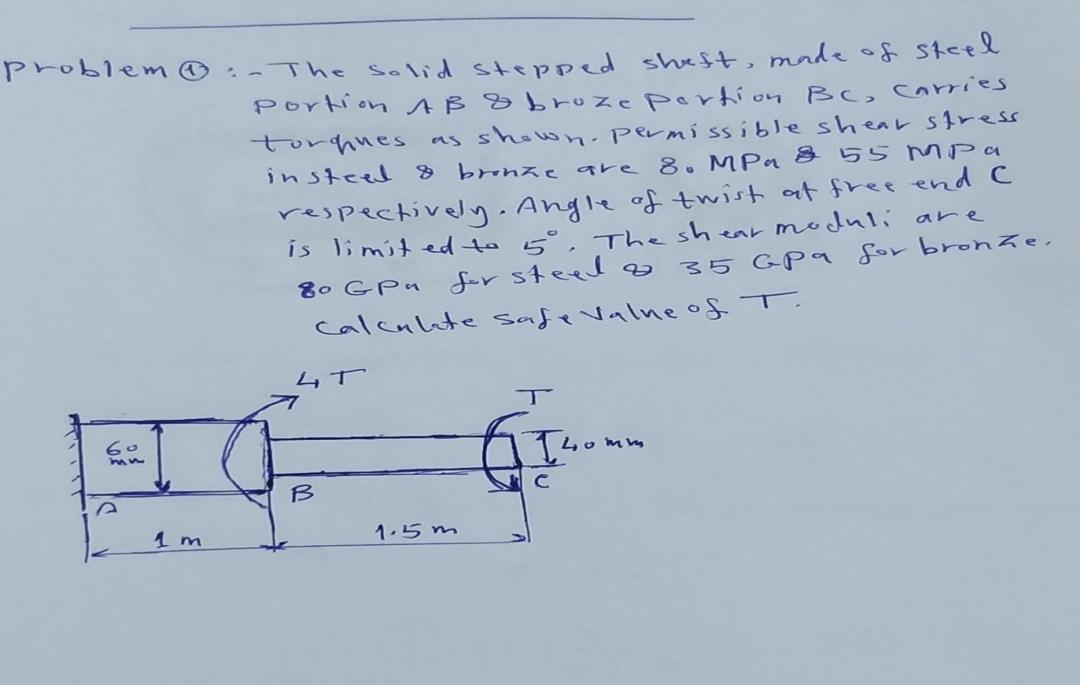 Problem ① :- The solid stepped shaft, made of steel
portion AB & broze portion BC, carries
torques as shown. permissible shear stress
in steel & bronze are 80 MPa & 55 MPa
respectively. Angle of twist at free end C
is limited to 5°. The shear moduli are
80 GPa for steel & 35 GPa for bronze.
Calculate safe value of T.
4T
T
60
mm
40 mm
A
B
C
1 m
1.5 m